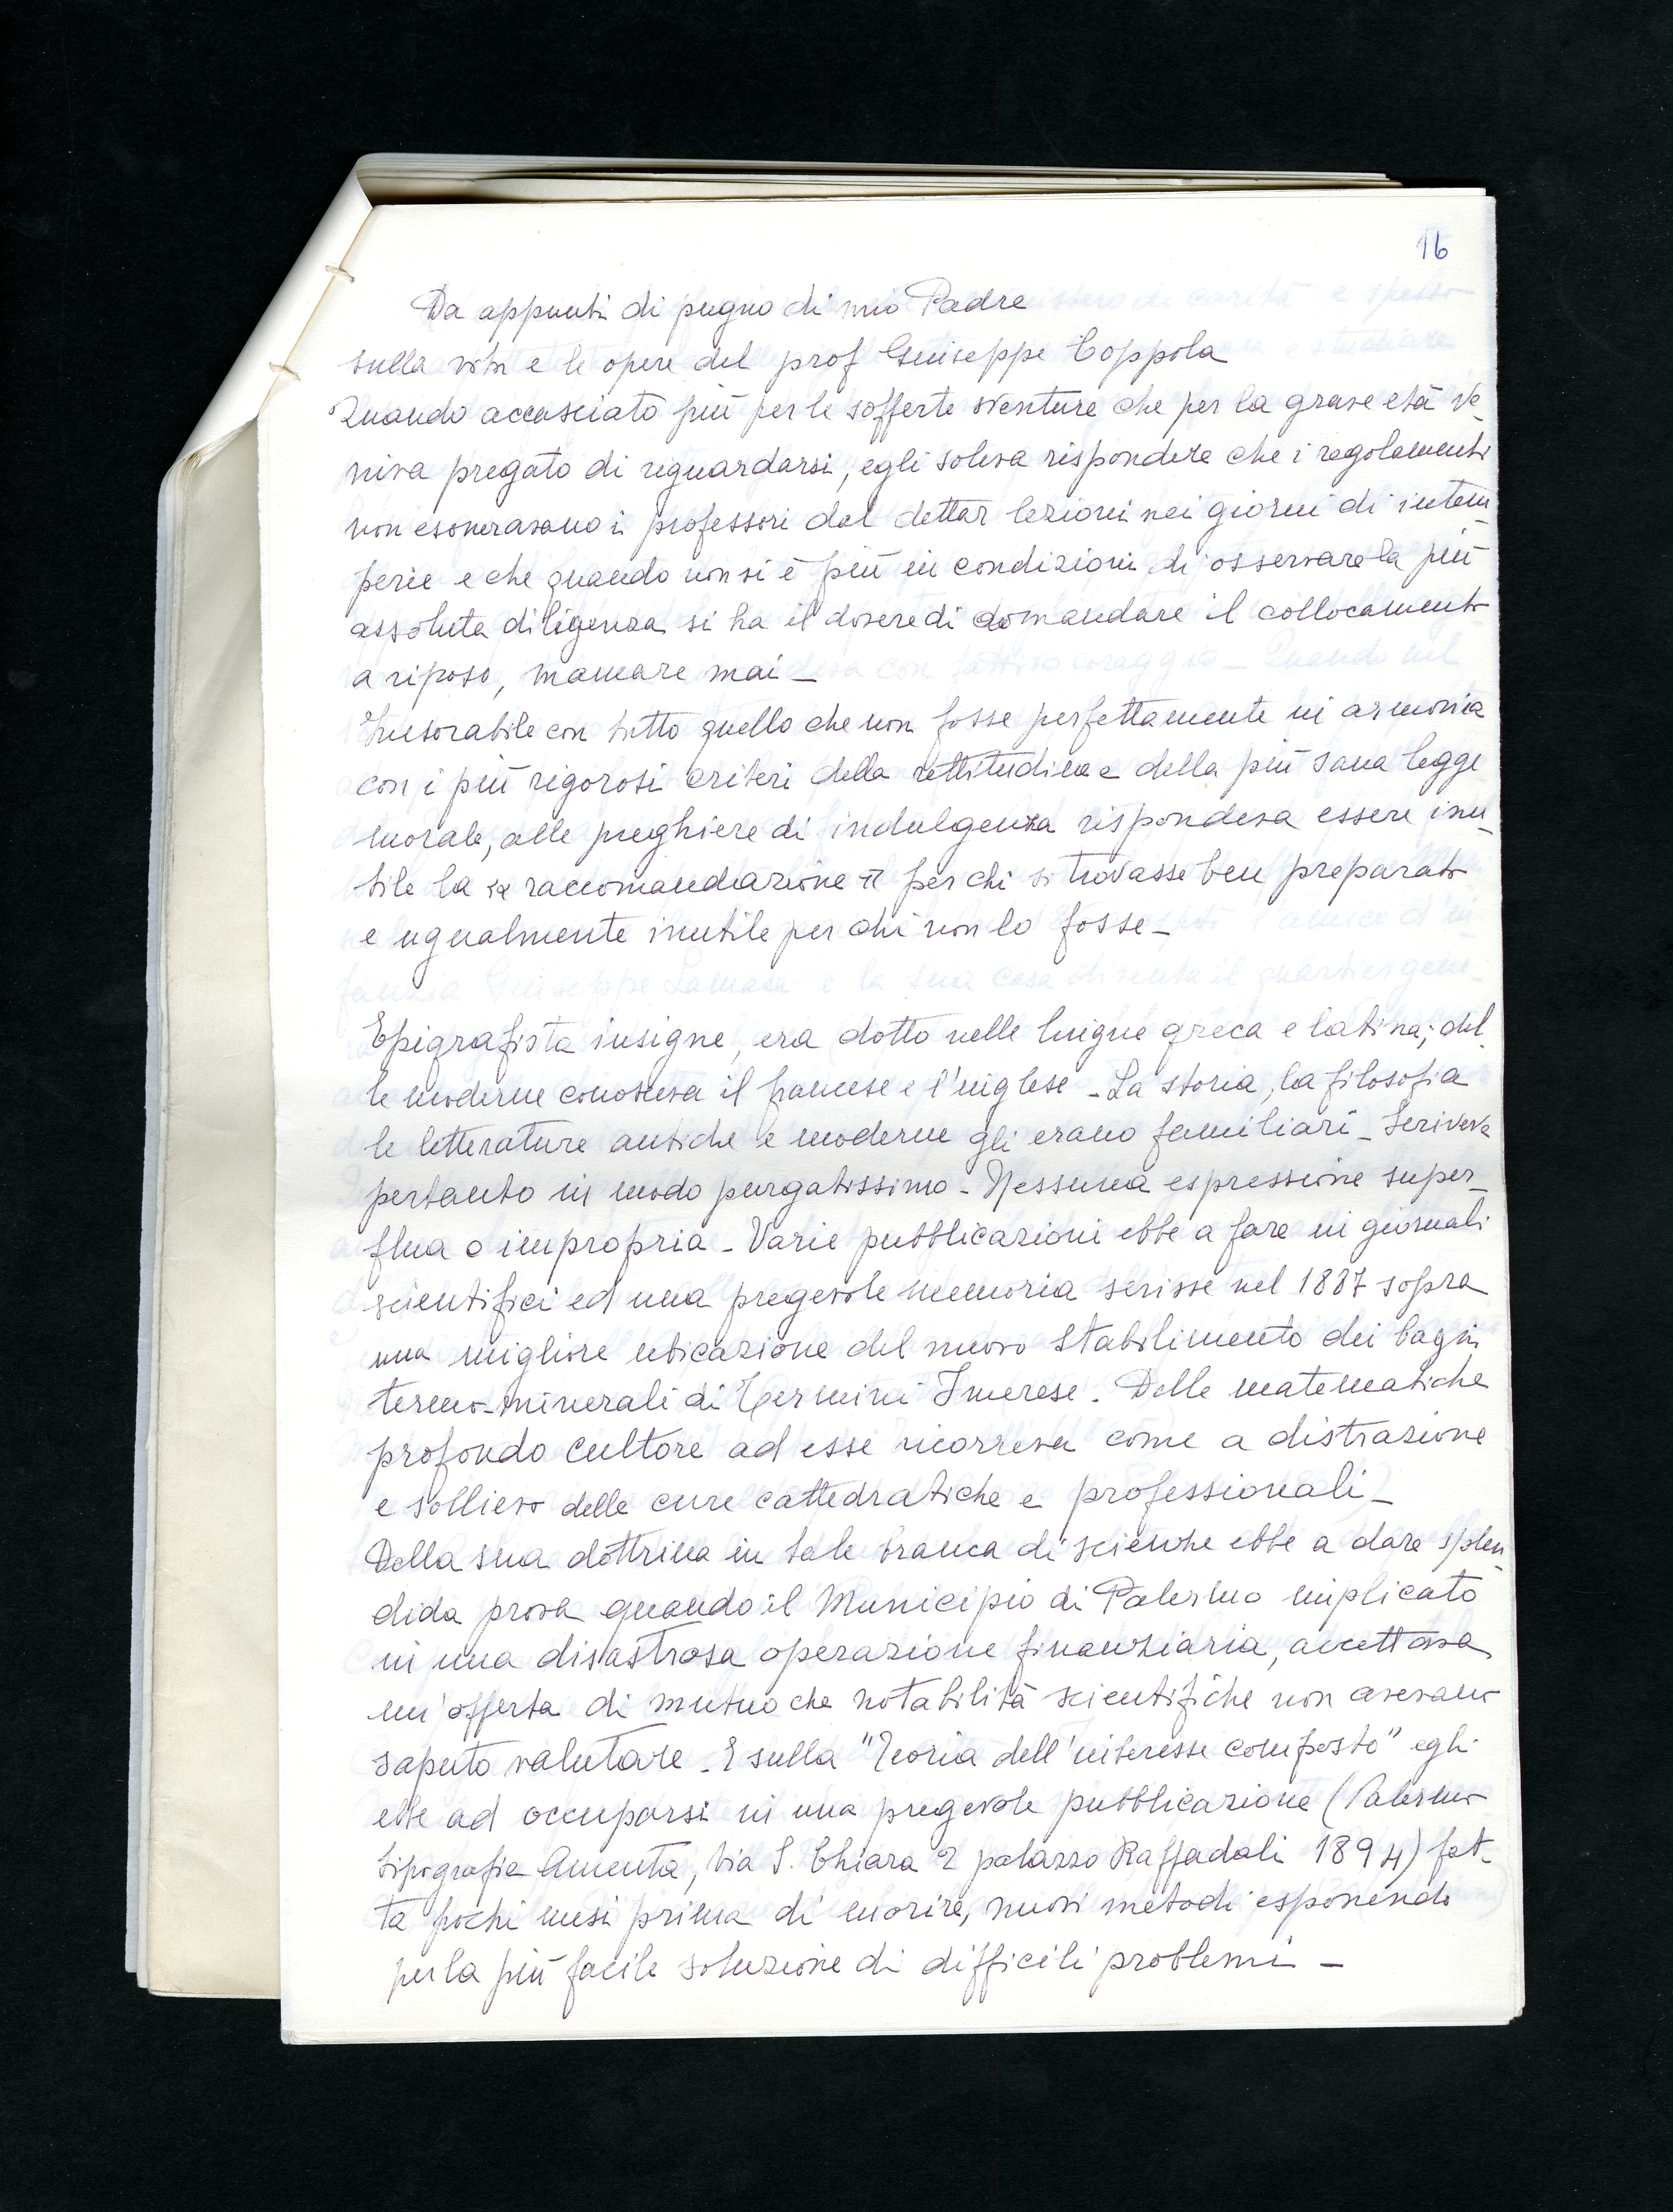 16
Da appunti di pugno di mio Padre
sulla vita e le opere del prof Giuseppe Coppola
Quando accasciato più per le sofferte sventure che per la grave età ve_
niva pregato di riguardarsi, egli soleva rispondere che i regolamenti
non esoneravano i professori dal dettar lezioni nei giorni di intem_
perie e che quando non si è più in condizioni di osservare la più
assoluta diligenza si ha il dovere di domandare il collocamento
a riposo, mancare mai _
Inesorabile con tutto quello che non fosse perfettamente in armonia
con i più rigorosi criteri della rettitudine e della più sana legge
morale, alle preghiere di indulgenza rispondeva essere inu_
tile la << raccomandazione >> per chi si trovasse ben preparato
e ugualmente inutile per chi non lo fosse _
Epigrafista insigne, era dotto nelle lingue greca e latina; del_
le moderne conosceva il francese e l'inglese _ La storia, la filosofia
le letterature antiche e moderne gli erano familiari _ Scriveva
pertanto in modo purgatissimo _ Nessuna espressione super_
flua o impropria _ Varie pubblicazioni ebbe a fare in giornali
scientifici ed una pregevole memoria scrisse nel 1887 sopra
una migliore ubicazione del nuovo Stabilimento dei bagni
termo-minerali di Termini Imerese. Delle matematiche
profondo cultore ad esse ricorreva come a distrazione
e sollievo delle cure cattedratiche e professionali _
Della sua dottrina in tale branca di scienze ebbe a dare splen_
dida prova quando il Municipio di Palermo implicato
in una disastrosa operazione finanziaria, accettava
un'offerta di mutuo che notabilità scientifiche non avevano
saputo valutare. E sulla "Teoria dell'interesse composto" egli
ebbe ad occuparsi in una pregevole pubblicazione (Palermo
tipografia Amenta, Via S. Chiara 2 palazzo Raffadali 1894) fat_
ta pochi mesi prima di morire, nuovi metodi esponendo
per la più facile soluzione di difficili problemi _